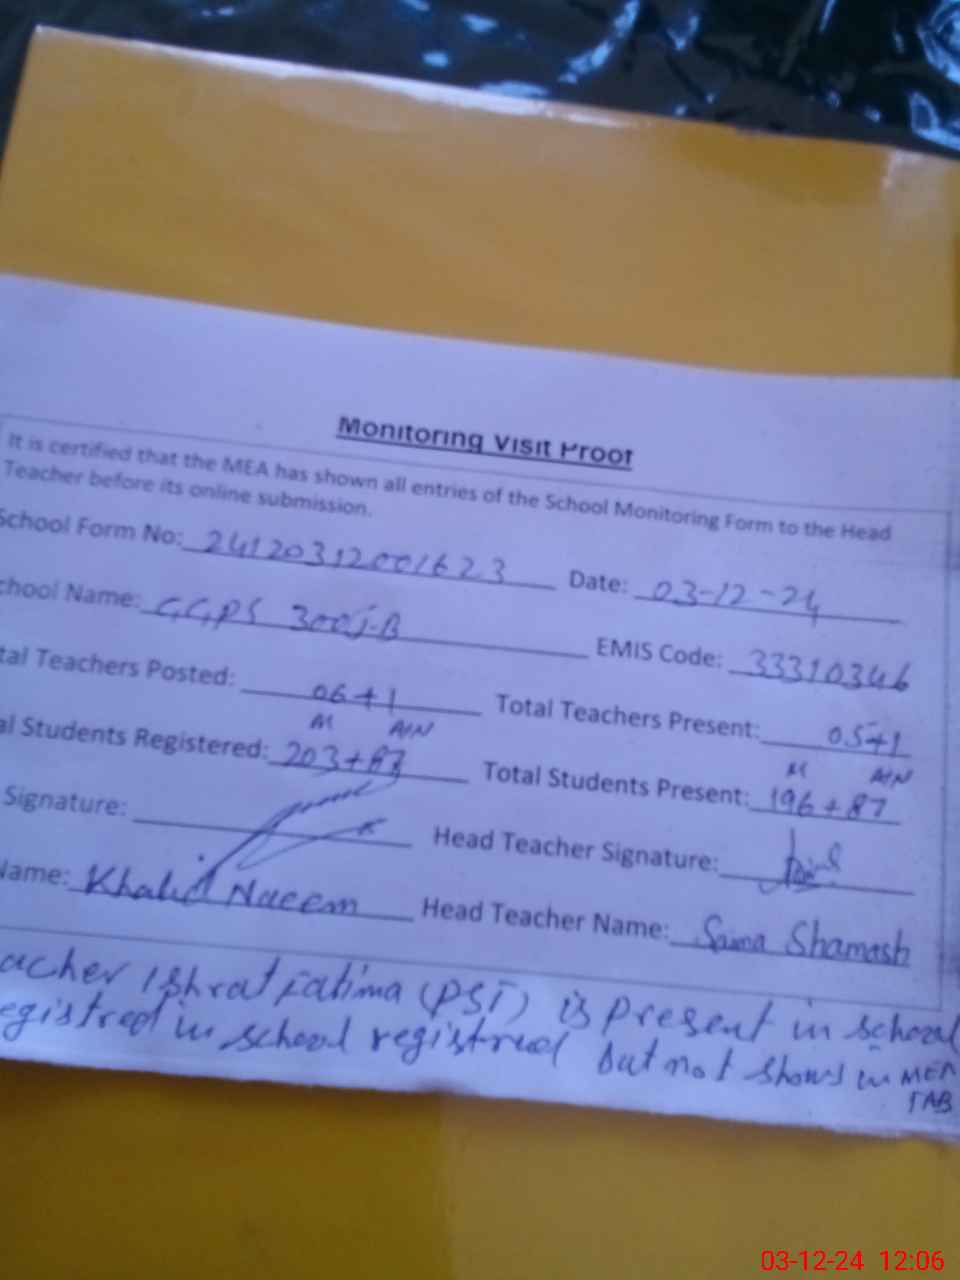 Monitoring Visit Proof
It is certified that the MEA has shown all entries of the School Monitoring Form to the Head
Teacher before its online submission.
School Form No: 24120312001623 Date: 03-12-24
chool Name: GGPS 300J-B EMIS Code: 33310346
tal Teachers Posted: 06+1 Total Teachers Present: 05+1
M A/N M A/N
al Students Registered: 203+87 Total Students Present: 196+87
Signature: Head Teacher Signature:
Name: Khalid Naeem Head Teacher Name: Saima Shamash
acher Ishrat Fatima (PST) is present in school
egistred in school registred but not shows in MEA
TAB
03-12-24 12:06